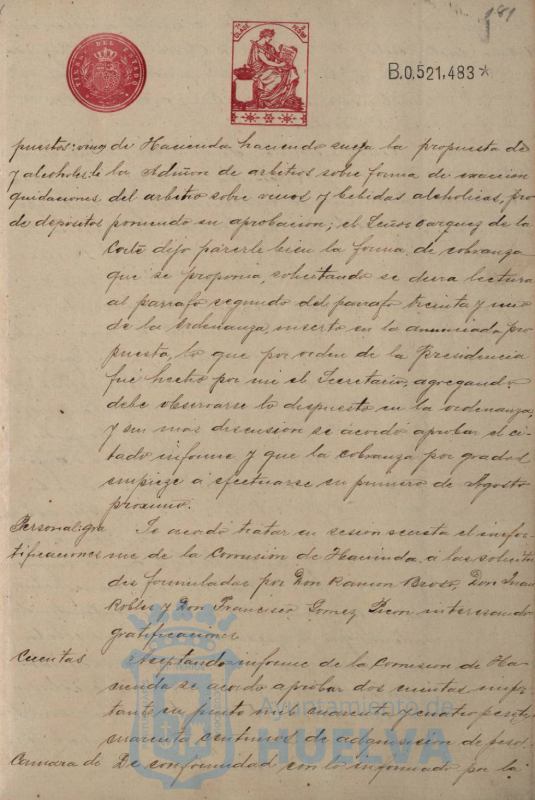 181
TIMBRE DEL ESTADO
CLASE
B.0.521.483*
puestos: vinos de Hacienda haciendo suya la propuesta de
y alcoholes: li la Admon de arbitrios sobre forma de exaccion
quidaciones del arbitrio sobre vinos y bebidas alcoholicas, pro
de depositos poniendo su aprobacion; el Señor Marquez de la
Corte dijo parecerle bien la forma de cobranza
que se proponia, solicitando se diera lectura
al parrafo segundo del parrafo treinta y uno
de la Ordenanza, inserto en la anunciada pro
puesta, lo que por orden de la Presidencia
fué hecho por mi el Secretario, agregando
debe observarse lo dispuesto en la ordenanza;
y sin mas discusion se acordó aprobar el ci-
tado informe y que la cobranza por grados
empiece á efectuarse en primero de Agosto
proximo.
Personal: gra Se acordó tratar en sesion secreta el infor-
tificaciones me de la Comision de Hacienda á las solicitu
des formuladas por Don Ramon Don Juan
Robles y Don Francisco Gomez interesando
gratificaciones
Cuentas Aceptando informe de la Comision de Ha-
cienda se acordó aprobar dos cuentas impor-
tante en junto mil cuarenta y cuatro pesetas
cuarenta centimos de adquisicion de
Camara de De conformidad con lo informado por la
Ayuntamiento de
HUELVA